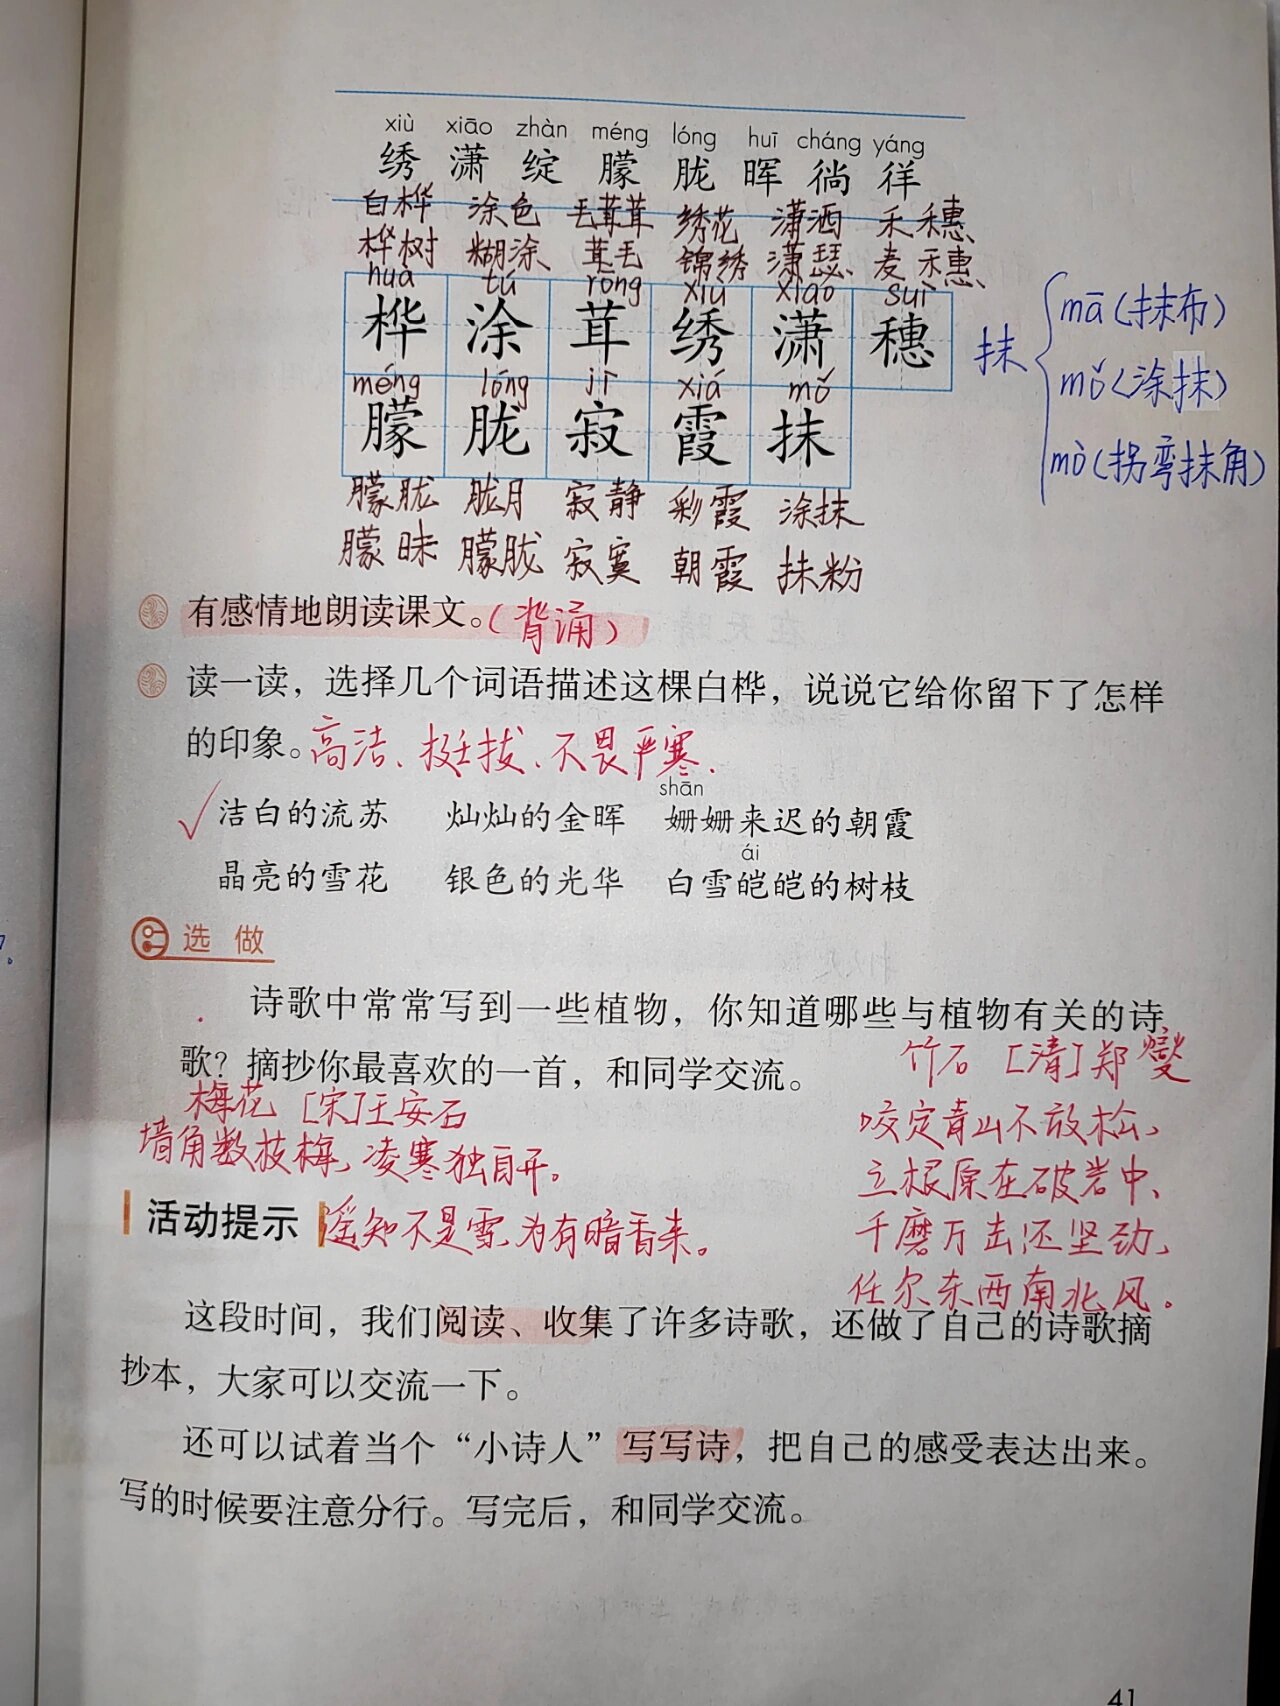 xiù xiāo zhàn méng lóng huī cháng yáng
绣 潇 绽 朦 胧 晖 徜 徉
白桦 涂色 毛茸茸 绣花 潇洒 禾穗
桦树 糊涂 茸毛 锦绣 潇瑟 麦穗
huà tú róng xiù xiāo suì
桦 涂 茸 绣 潇 穗
méng lóng jì xiá mǒ
朦 胧 寂 霞 抹
抹
mā(抹布)
mǒ(涂抹)
mò(拐弯抹角)
朦胧 胧月 寂静 彩霞 涂抹
朦昧 朦胧 寂寞 朝霞 抹粉
有感情地朗读课文。(背涌)
读一读，选择几个词语描述这棵白桦，说说它给你留下了怎样
的印象。高洁、挺拔、不畏严寒.
shān
√洁白的流苏 灿灿的金晖 姗姗来迟的朝霞
ái
晶亮的雪花 银色的光华 白雪皑皑的树枝
选 做
诗歌中常常写到一些植物，你知道哪些与植物有关的诗
歌？摘抄你最喜欢的一首，和同学交流。
梅花 [宋]王安石
墙角数枝梅，凌寒独自开。
遥知不是雪，为有暗香来。
竹石 [清]郑燮
咬定青山不放松，
立根原在破岩中、
千磨万击还坚劲，
任尔东西南北风。
活动提示
这段时间，我们阅读、收集了许多诗歌，还做了自己的诗歌摘
抄本，大家可以交流一下。
还可以试着当个“小诗人”写写诗，把自己的感受表达出来。
写的时候要注意分行。写完后，和同学交流。
41